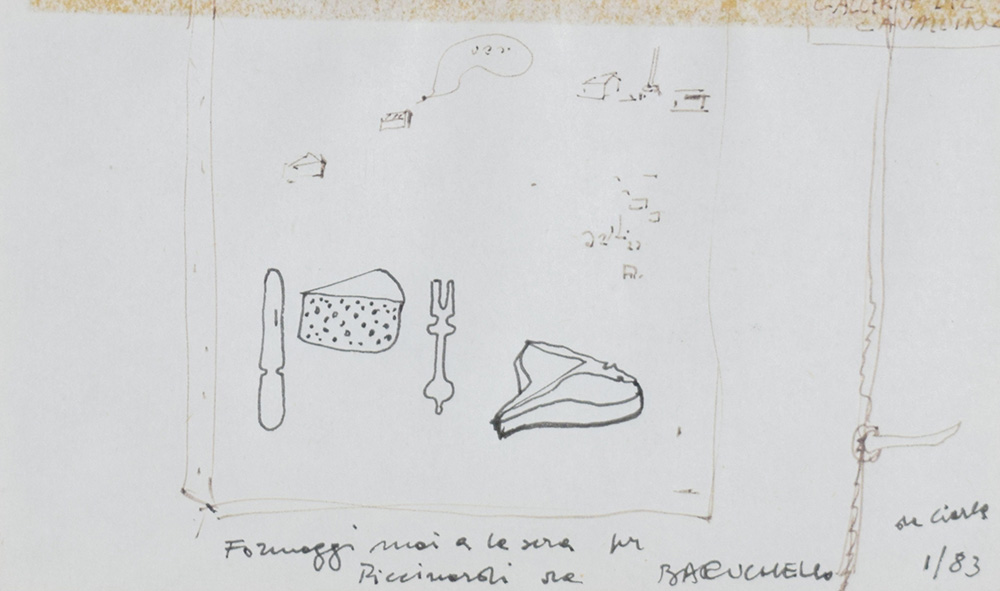 GALLERIA DEL
CAVALLINO
Formaggi mai a la sera per
Piccinardi da BARUCHELLO
1/83